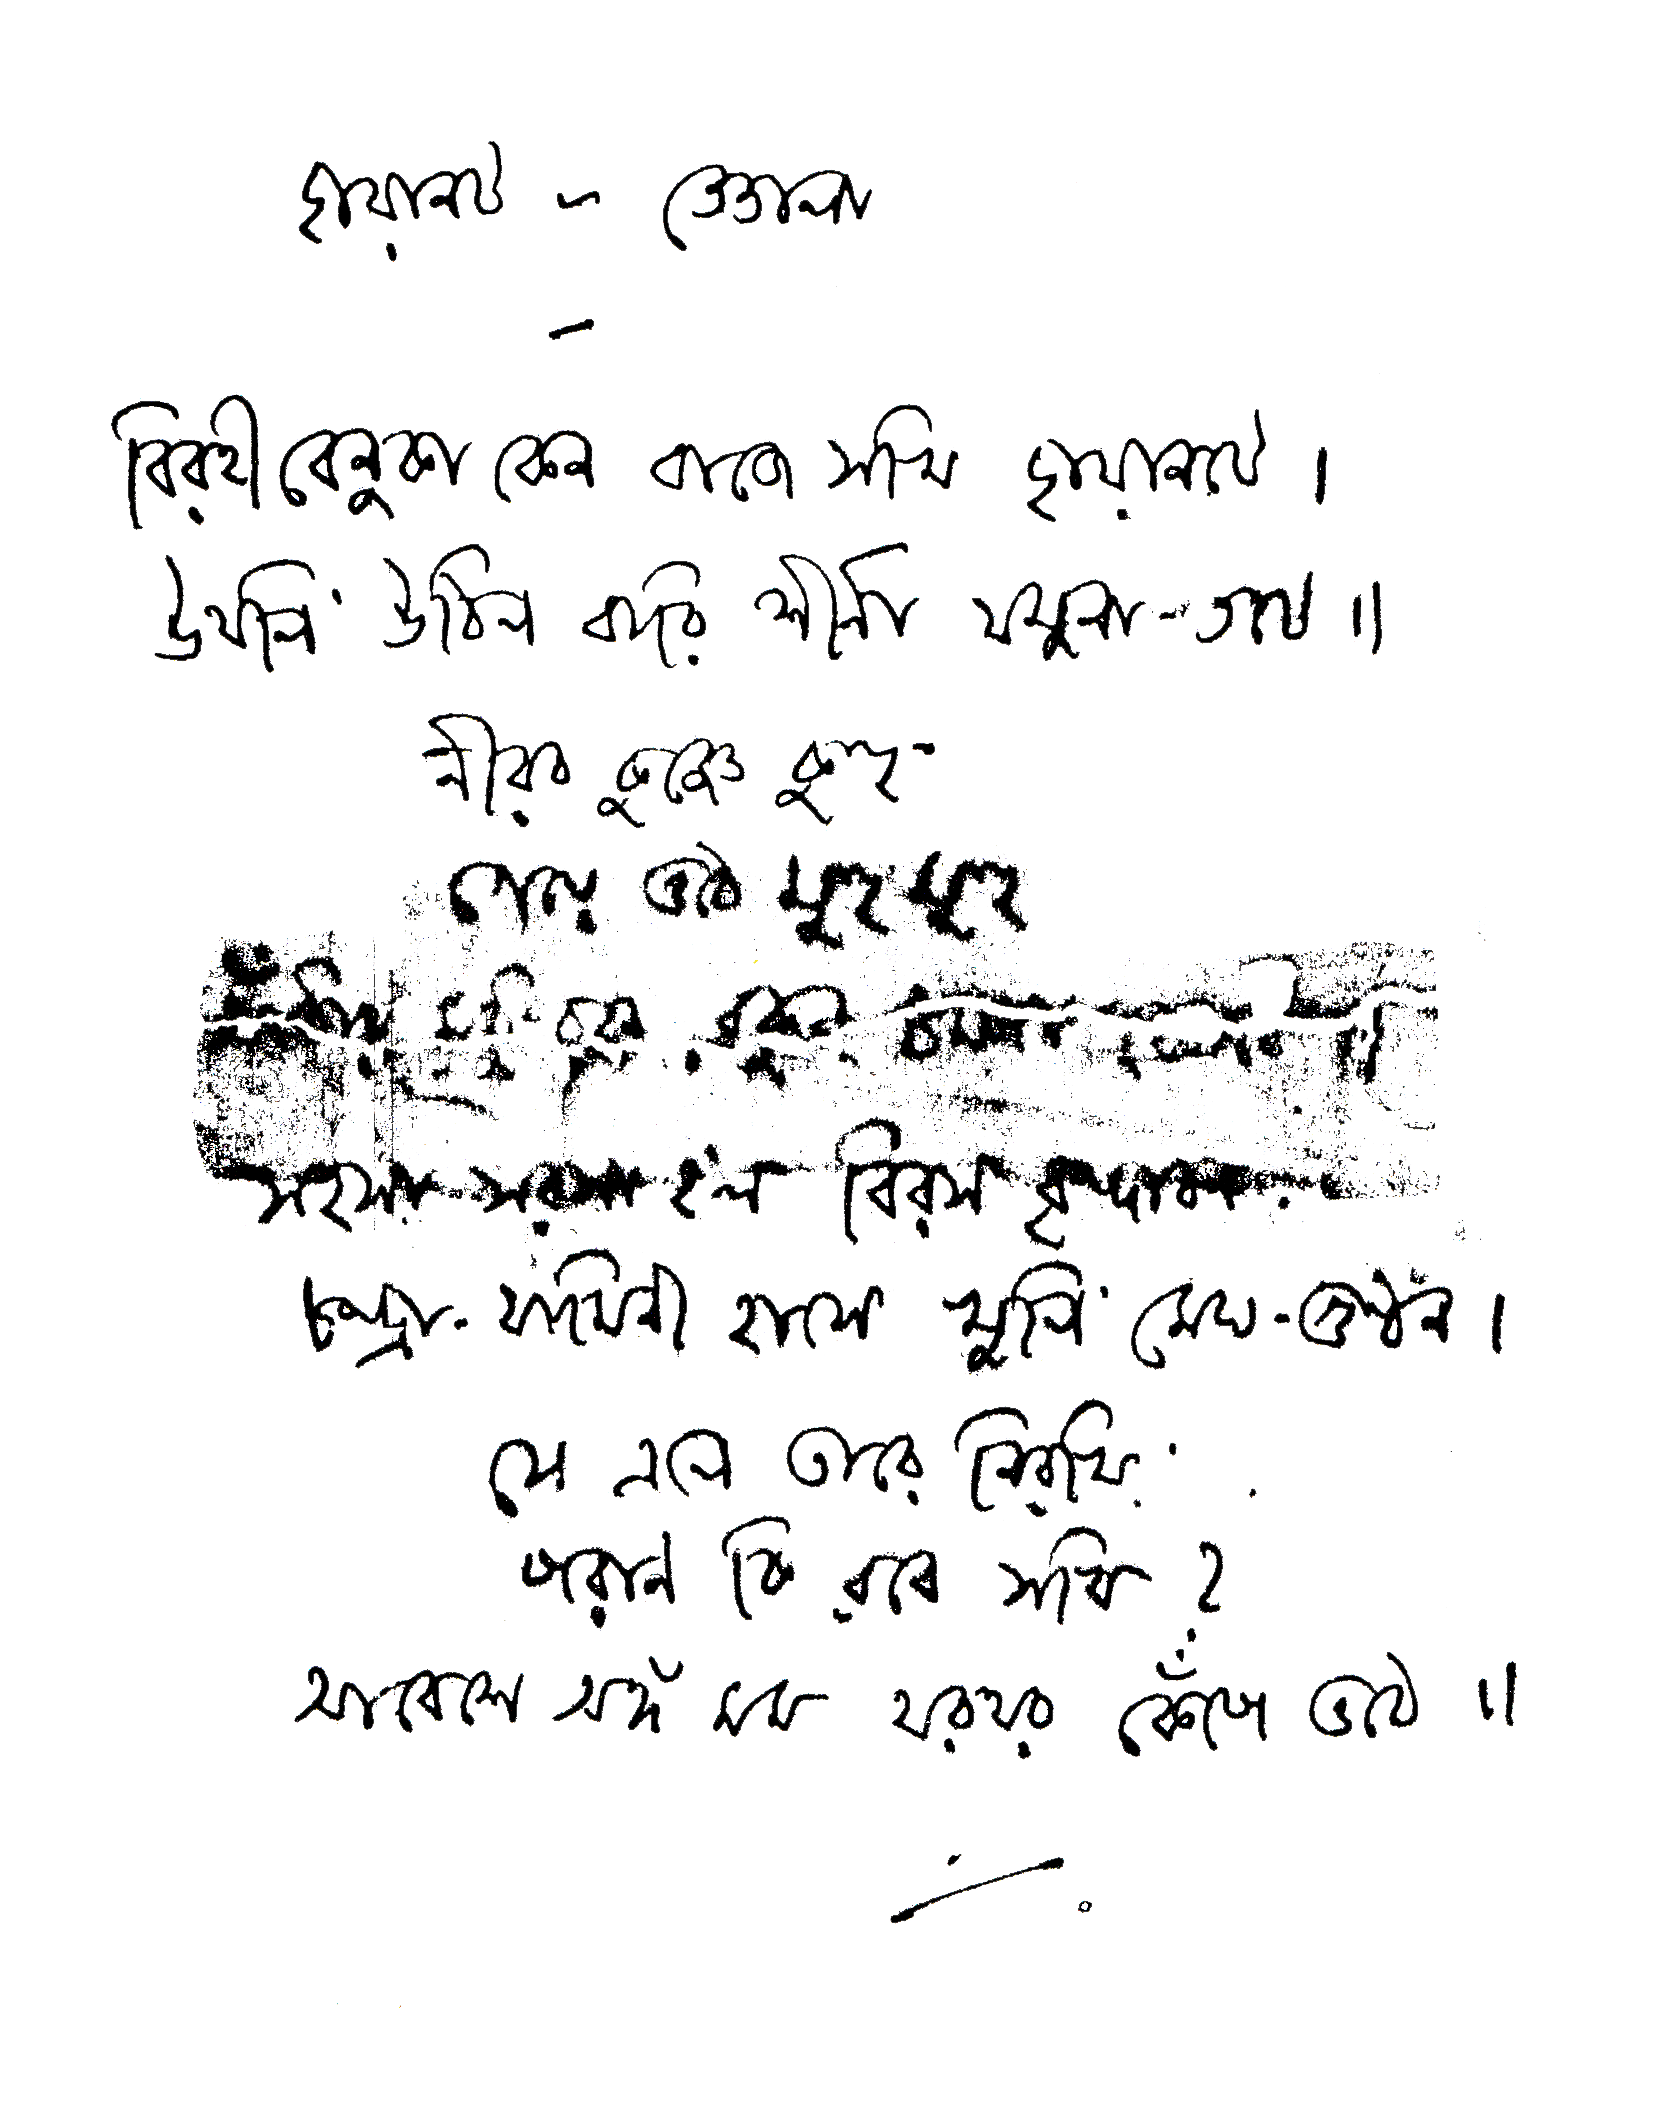 ছায়ানট - তেতালা
বিরহী বেনুকা কেন বাজে সখি ছায়ানটে ।
উথলি উঠিল বারি শীর্না যমুনা-তটে ॥
নীরব কুঞ্জে কুহু
গেয়ে ওঠে মুহু মুহু
সহসা সরস হল বিরস বৃন্দাবন
চন্দ্রা-যামিনী হাসে খুলি মেঘ-গুণ্ঠন ।
সে এলে তারে নিরখি
পরান কি রবে সখি ?
আবেশে অঙ্গ মম থরথর কেঁপে ওঠে ॥